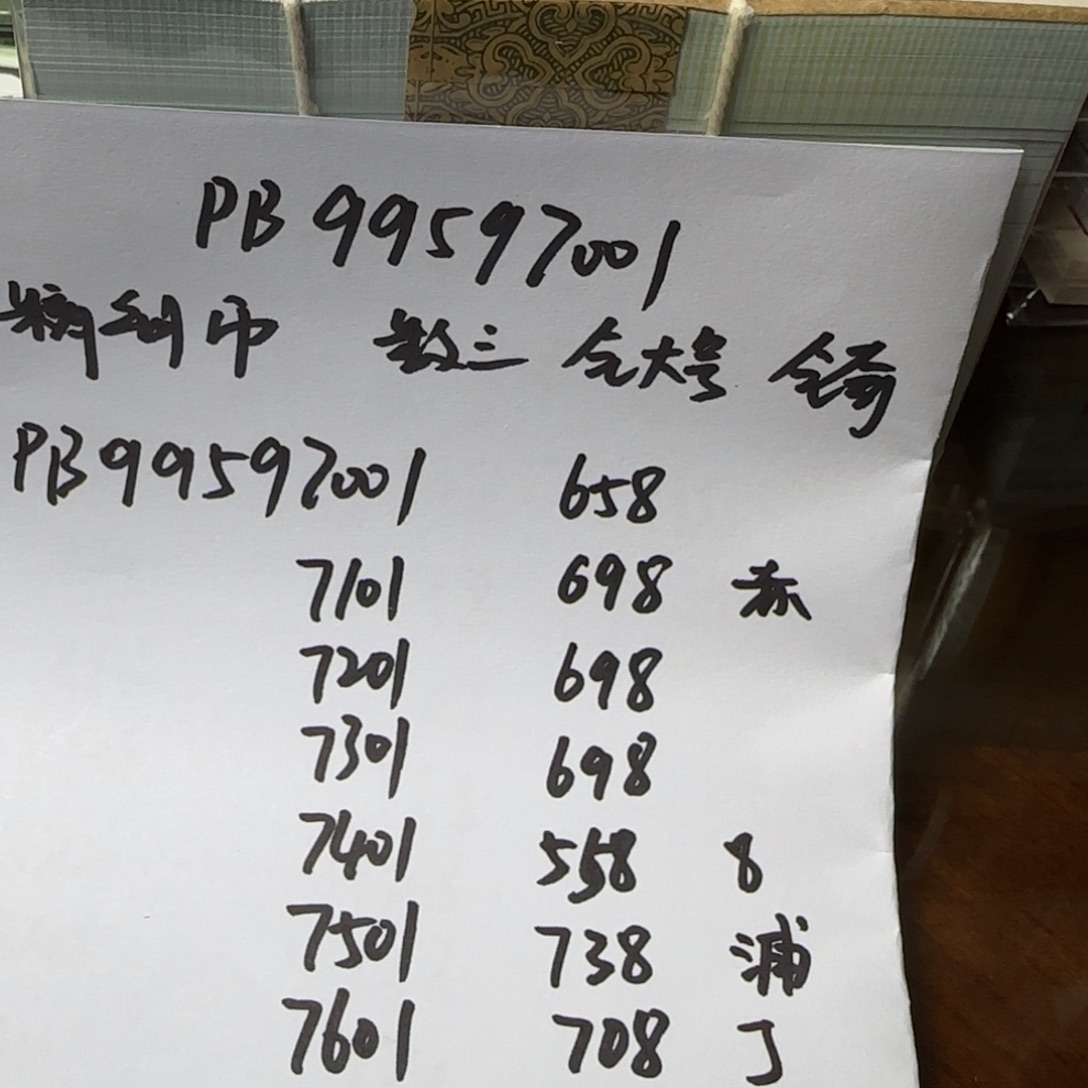 PB99597001
精制币 数三 全大号 全奇
PB99597001 658
7101 698 赤
7201 698
7301 698
7401 558 8
7501 738 浦
7601 708 丁